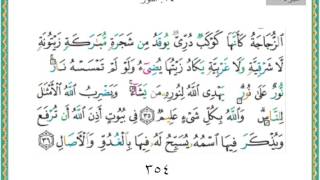 الزُّجَاجَةُ كَأَنَّهَا كَوْكَبٌ دُرِّيٌّ يُوقَدُ مِن شَجَرَةٍ مُّبَارَكَةٍ زَيْتُونَةٍ
لَّا شَرْقِيَّةٍ وَلَا غَرْبِيَّةٍ يَكَادُ زَيْتُهَا يُضِيءُ وَلَوْ لَمْ تَمْسَسْهُ نَارٌ
نُّورٌ عَلَىٰ نُورٍ يَهْدِي اللَّهُ لِنُورِهِ مَن يَشَاءُ وَيَضْرِبُ اللَّهُ الْأَمْثَالَ
لِلنَّاسِ وَاللَّهُ بِكُلِّ شَيْءٍ عَلِيمٌ ٣٥ فِي بُيُوتٍ أَذِنَ اللَّهُ أَن تُرْفَعَ
وَيُذْكَرَ فِيهَا اسْمُهُ يُسَبِّحُ لَهُ فِيهَا بِالْغُدُوِّ وَالْآصَالِ ٣٦
٣٥٤